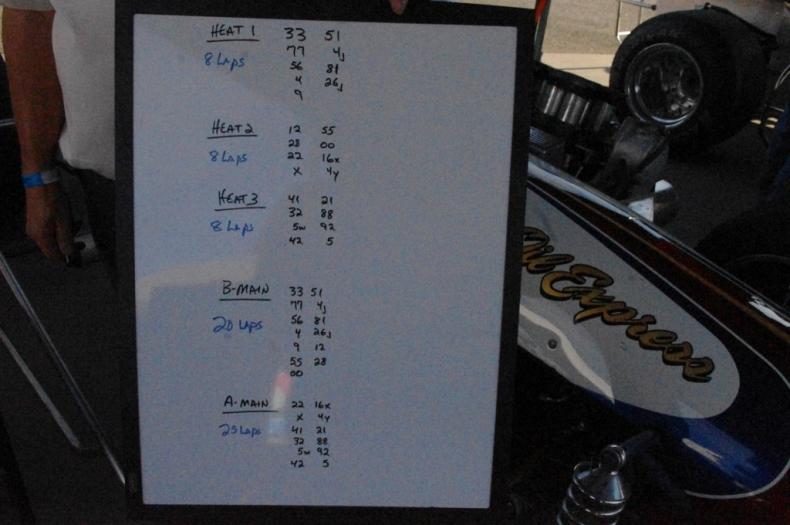 HEAT 1 33 51
8 Laps 77 4J
56 81
4 26J
9
HEAT 2 12 55
28 00
8 Laps 22 16x
X 4Y
HEAT 3 41 21
32 88
8 Laps 5w 92
42 5
B-MAIN 33 51
77 4J
20 Laps 56 81
4 26J
9 12
55 28
00
A-MAIN 22 16x
X 4Y
25 Laps 41 21
32 88
5w 92
42 5
Oil Express